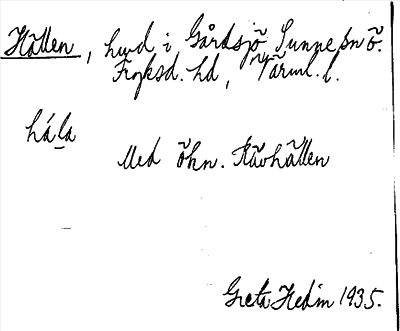 Hällen, hmd i Gårdsjö Sunne sn ö.
Fryksd. hd, Värml. l.
håla
Med öhn. Rävhällen
Greta Hedin 1935.